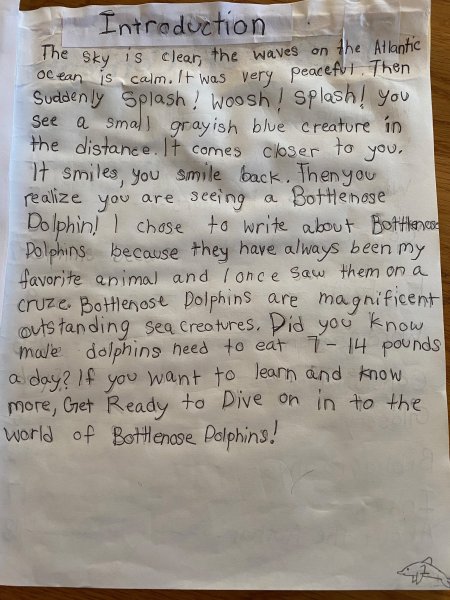 Introduction
The sky is clear, the waves on the Atlantic
ocean is calm. It was very peaceful. Then
Suddenly Splash! Woosh! Splash! you
see a small grayish blue creature in
the distance. It comes closer to you.
It smiles, you smile back. Then you
realize you are seeing a Bottlenose
Dolphin! I chose to write about Bottlenose
Dolphins because they have always been my
favorite animal and I once saw them on a
cruze. Bottlenose Dolphins are magnificent
outstanding sea creatures. Did you know
male dolphins need to eat 7-14 pounds
a day? If you want to learn and know
more, Get Ready to Dive on in to the
world of Bottlenose Dolphins!